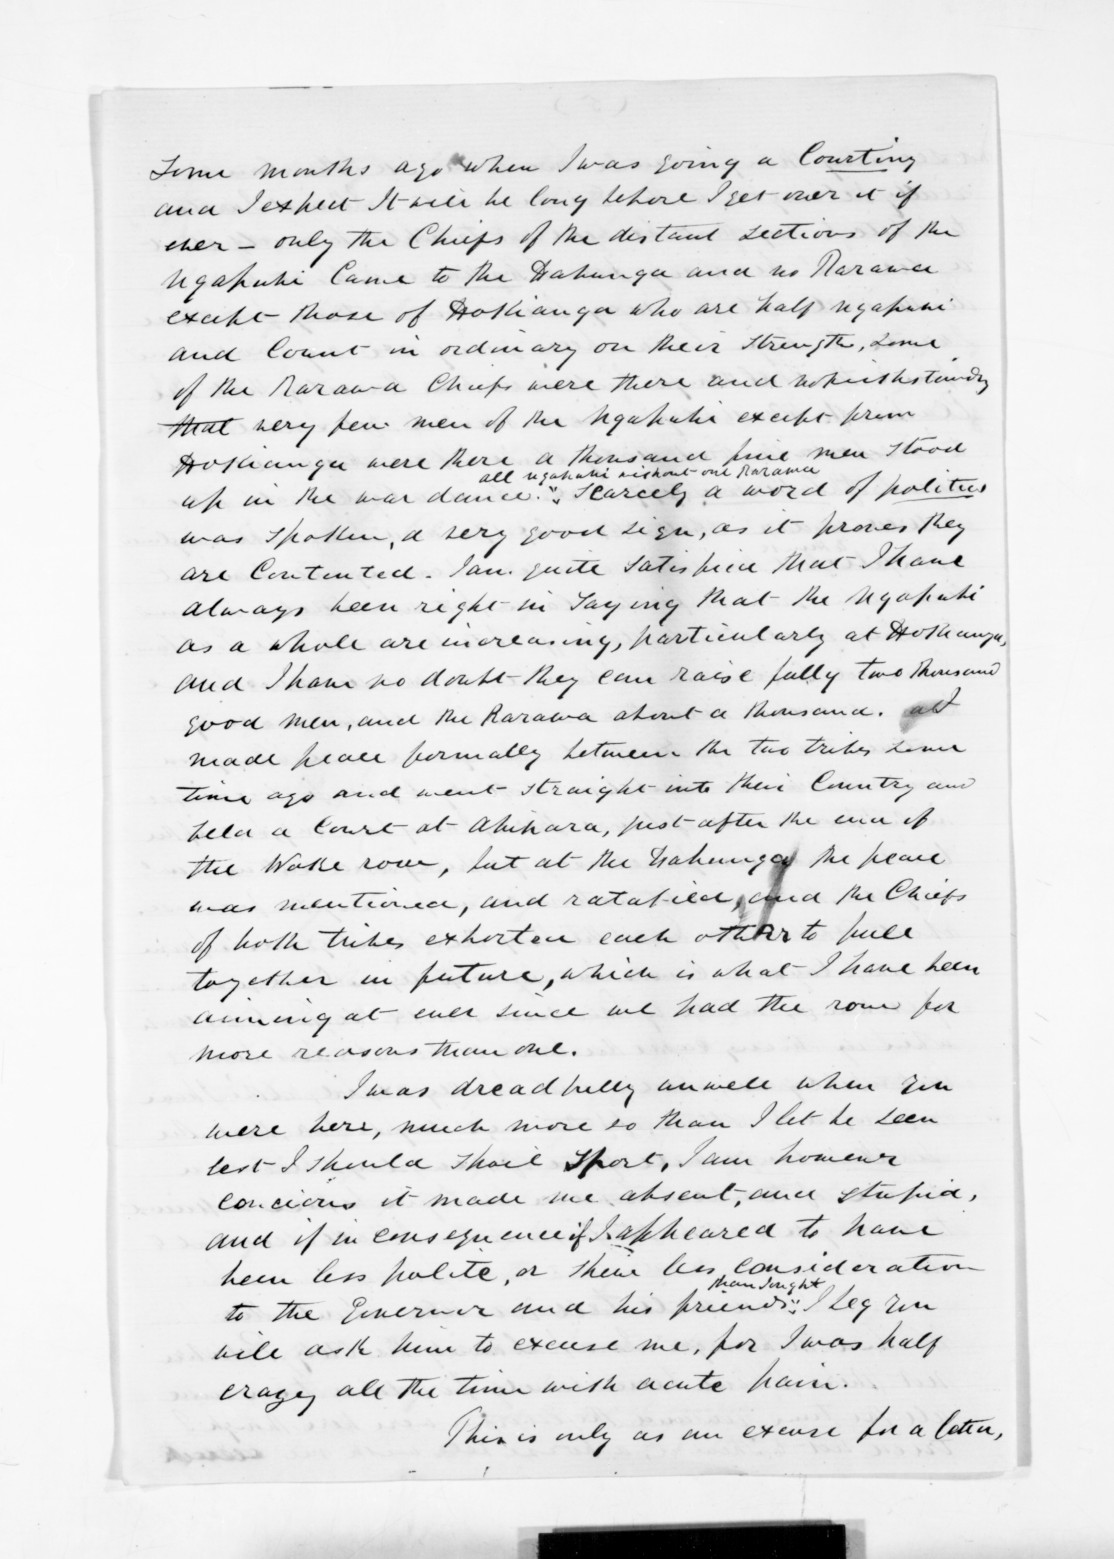 some months ago when I was going a Courting
and I expect It will be long before I get over it if
ever - only the Chiefs of the distant sections of the
Ngapuhi Came to the Hahunga and no Rarawa
except those of Hokianga who are half ngapuhi
and Count in ordinary on their strength, some
of the Rarawa Chiefs were there and notwithstanding
that very few men of the Ngapuhi except from
Hokianga were there a thousand fine men stood
all ngapuhi without one Rarawa
up in the war dance. Scarcely a word of politics
was spoken, a very good sign, as it proves they
are Contented. I am quite satisfied that I have
always been right in saying that the Ngapuhi
as a whole are increasing, particularly at Hokianga,
and I have no doubt they can raise fully two thousand
good men, and the Rarawa about a thousand. I
made peace formally between the two tribes some
time ago and went straight into their Country and
held a Court at Ahipara, just after the end of
the Wake row, but at the Hahunga the peace
was mentioned, and ratafied, and the Chiefs
of both tribes exhorted each other to pull
together in future, which is what I have been
aiming at ever since we had the row for
more reasons than one.
I was dreadfully unwell when you
were here, much more so than I let be seen
lest I should spoil sport, I am however
concious it made me absent, and stupid,
and if in consequence if I appeared to have
been less polite, or shew less consideration
than I ought
to the Governor and his friends, I beg you
will ask him to excuse me, for I was half
crazey all the time with acute pain.
This is only as an excuse for a letter,